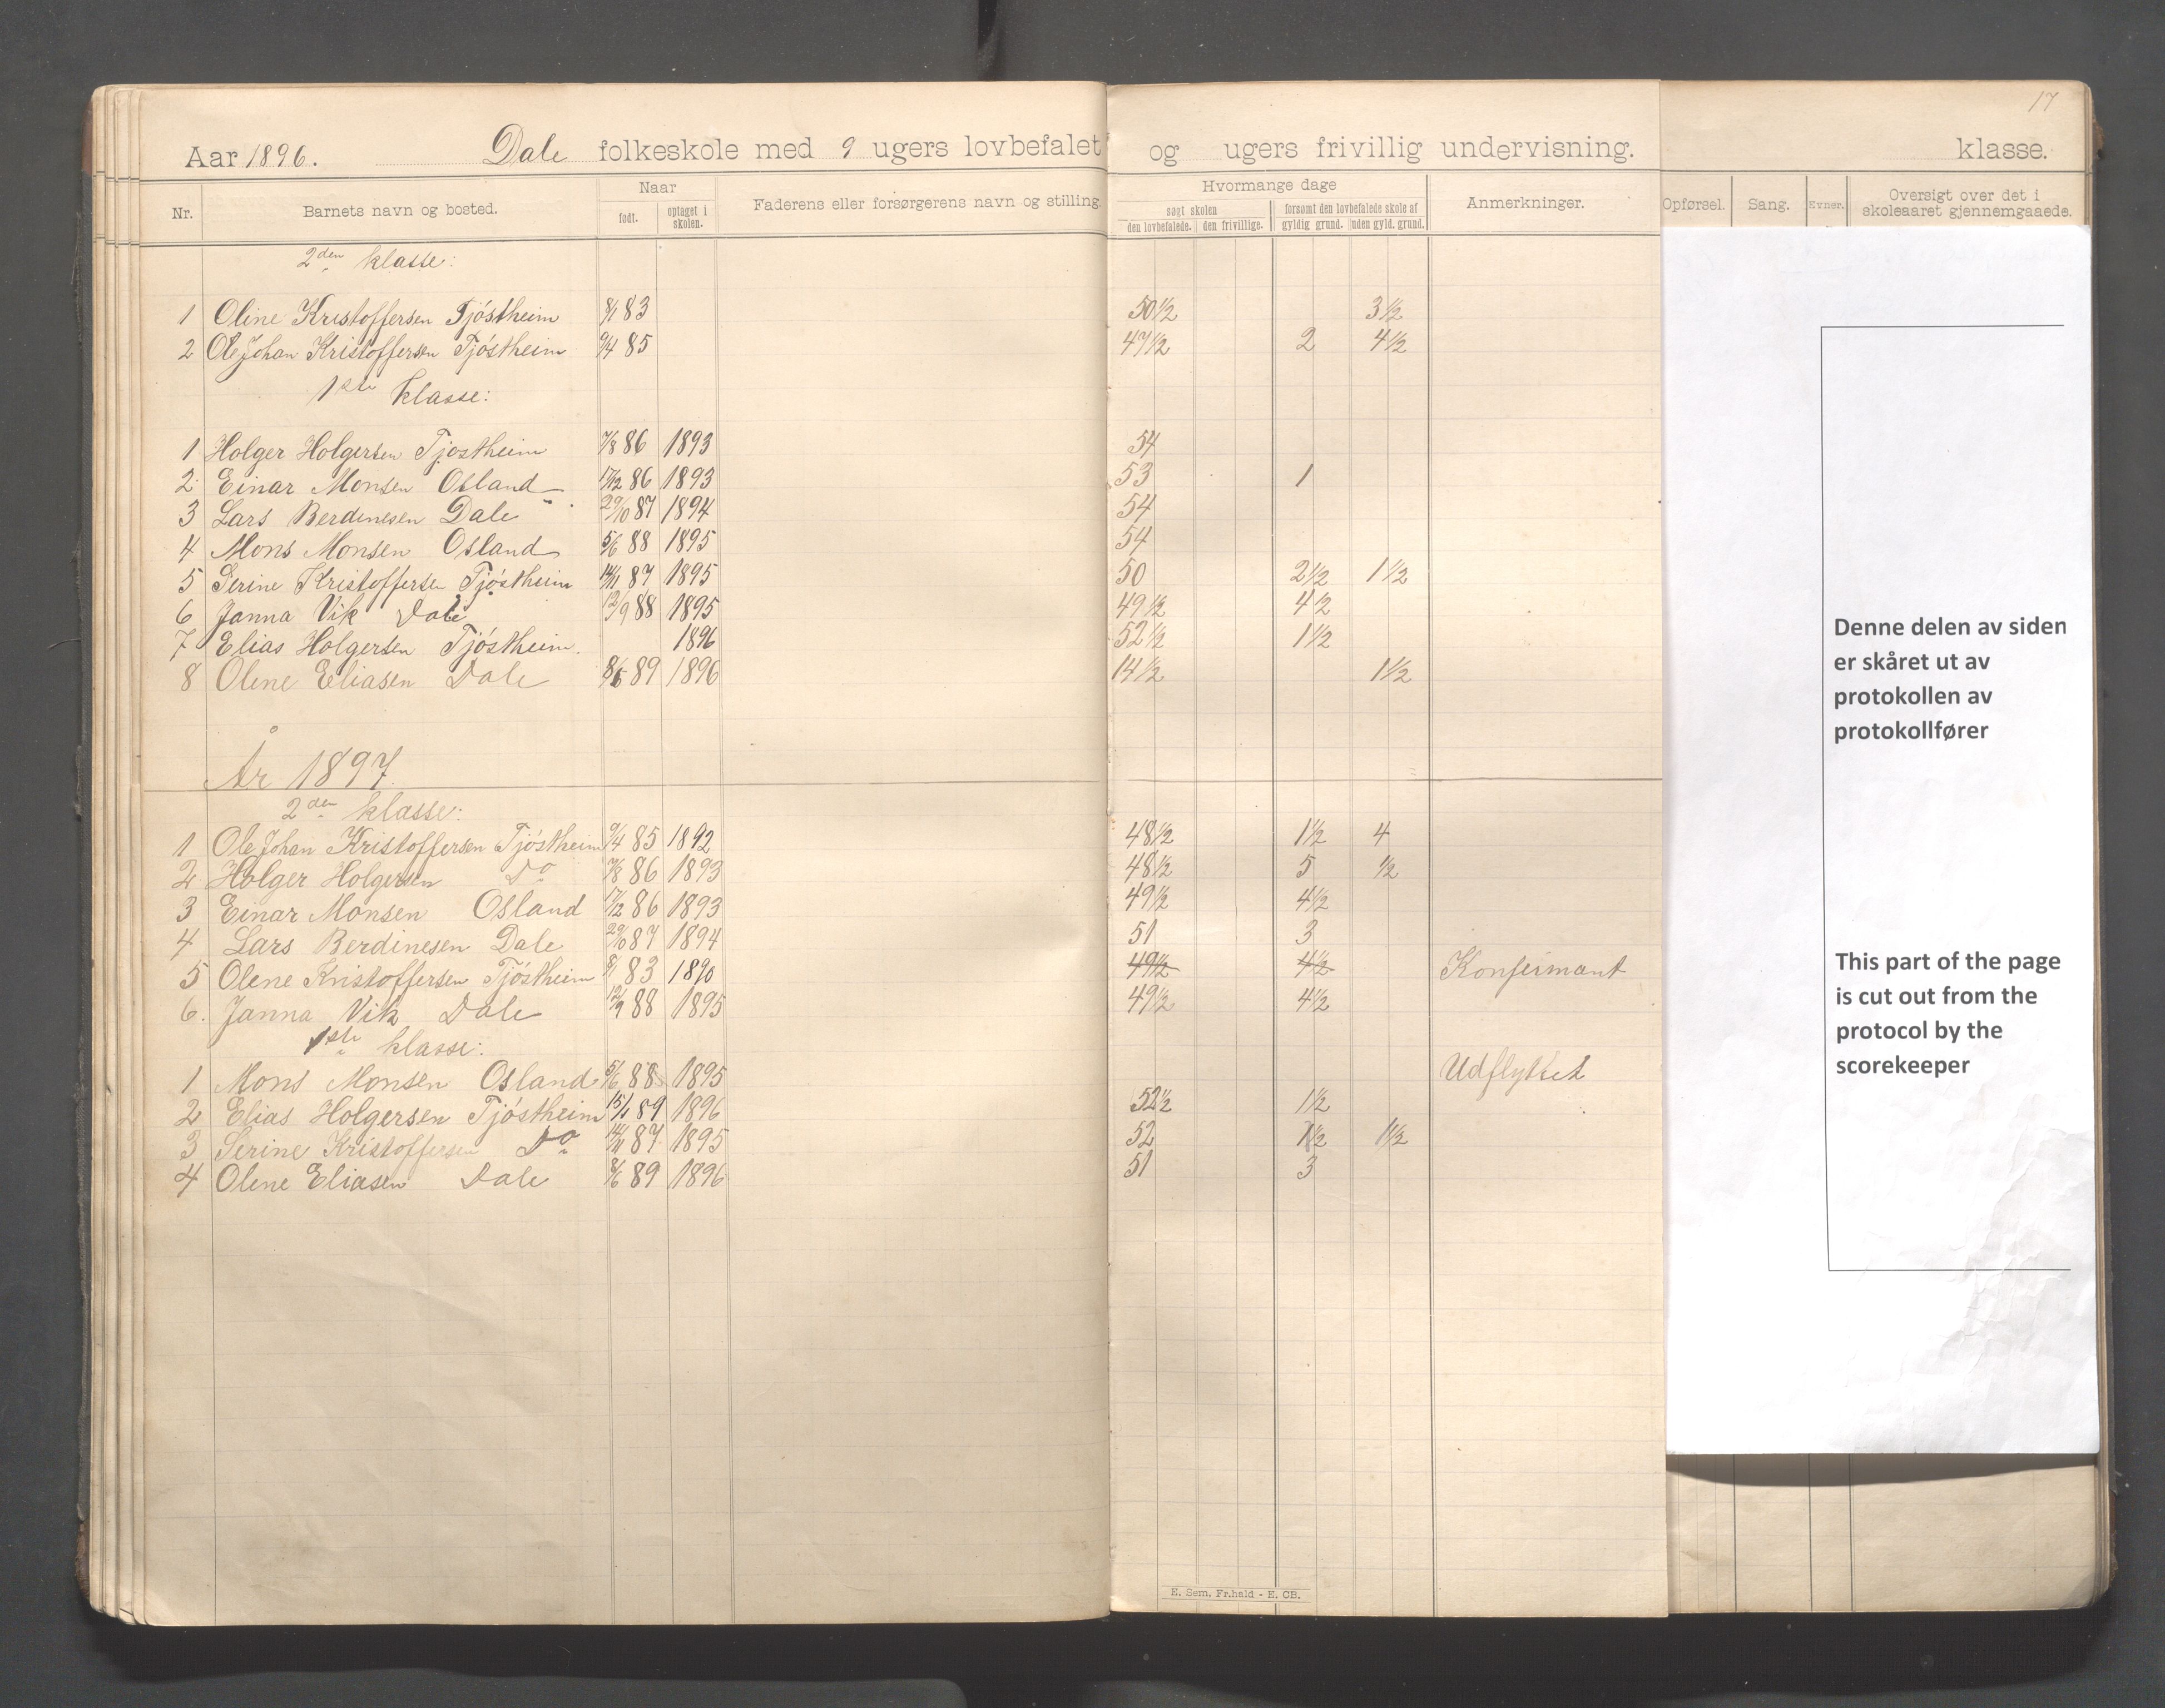 17
Aar 1896. Dale folkeskole med 9 ugers lovbefalet og ugers frivillig undervisning. klasse.
Nr. Barnets navn og bosted. Naar født. optaget i skolen. Faderens eller forsørgerens navn og stilling. Hvormange dage søgt skolen den lovbefalede. den frivillige. forsømt den lovbefalede skole af gyldig grund. uden gyld. grund. Anmerkninger. Opførsel. Sang. Evner. Oversigt over det i skoleaaret gjennemgaaede.
2den klasse:
1 Oline Kristoffersen Tjóstheim 8/1 83 50 1/2 3 1/2
2 Ole Johan Kristoffersen Tjóstheim 9/4 85 47 1/2 2 4 1/2
1ste klasse:
1 Holger Holgersen Tjostheim 7/8 86 1893 54
2 Einar Monsen Osland 17/12 86 1893 53 1
3 Lars Berdinesen Dale 29/10 87 1894 54
4 Mons Monsen Osland 5/6 88 1895 54
5 Serine Kristoffersen Tjóstheim 14/11 87 1895 50 2 1/2 1 1/2
6 Janna Vik Dale 12/9 88 1895 49 1/2 4 1/2
7 Elias Holgersen Tjóstheim. 1896 52 1/2 1 1/2
8 Olene Eliasen Dale 8/6 89 1896 14 1/2 1 1/2
År 1897.
2den klasse:
1 Ole Johan Kristoffersen Tjóstheim 9/4 85 1892 48 1/2 1 1/2 4
2 Holger Holgersen Do 7/8 86 1893 48 1/2 5 1/2
3 Einar Monsen Osland 17/12 86 1893 49 1/2 4 1/2
4 Lars Berdinesen Dale 29/10 87 1894 51 3
5 Olene Kristoffersen Tjóstheim 8/1 83 1890 49 1/2 4 1/2 Konfirmant
6. Janna Vik Dale 12/9 88 1895 49 1/2 4 1/2
1ste klasse:
1 Mons Monsen Osland 5/6 88 1895 Udflyttet
2 Elias Holgersen Tjóstheim 15/1 89 1896 52 1/2 1 1/2
3 Serine Kristoffersen Do 14/11 87 1895 52 1 1/2 1 1/2
4 Olene Eliasen Dale 8/6 89 1896 51 3
E. Sem. Fr.hald - E. CB.
Denne delen av siden
er skåret ut av
protokollen av
protokollfører
This part of the page
is cut out from the
protocol by the
scorekeeper